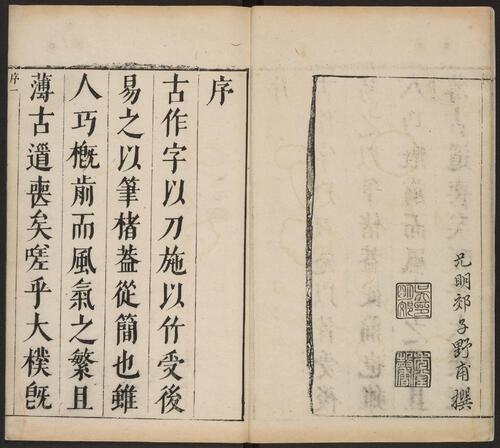 兄明郊子野甫撰
序
古作字以刀施以竹受後
易之以筆楮蓋從簡也雖
人巧槪前而風氣之繁且
薄古道喪矣嗟乎大樸旣
序一